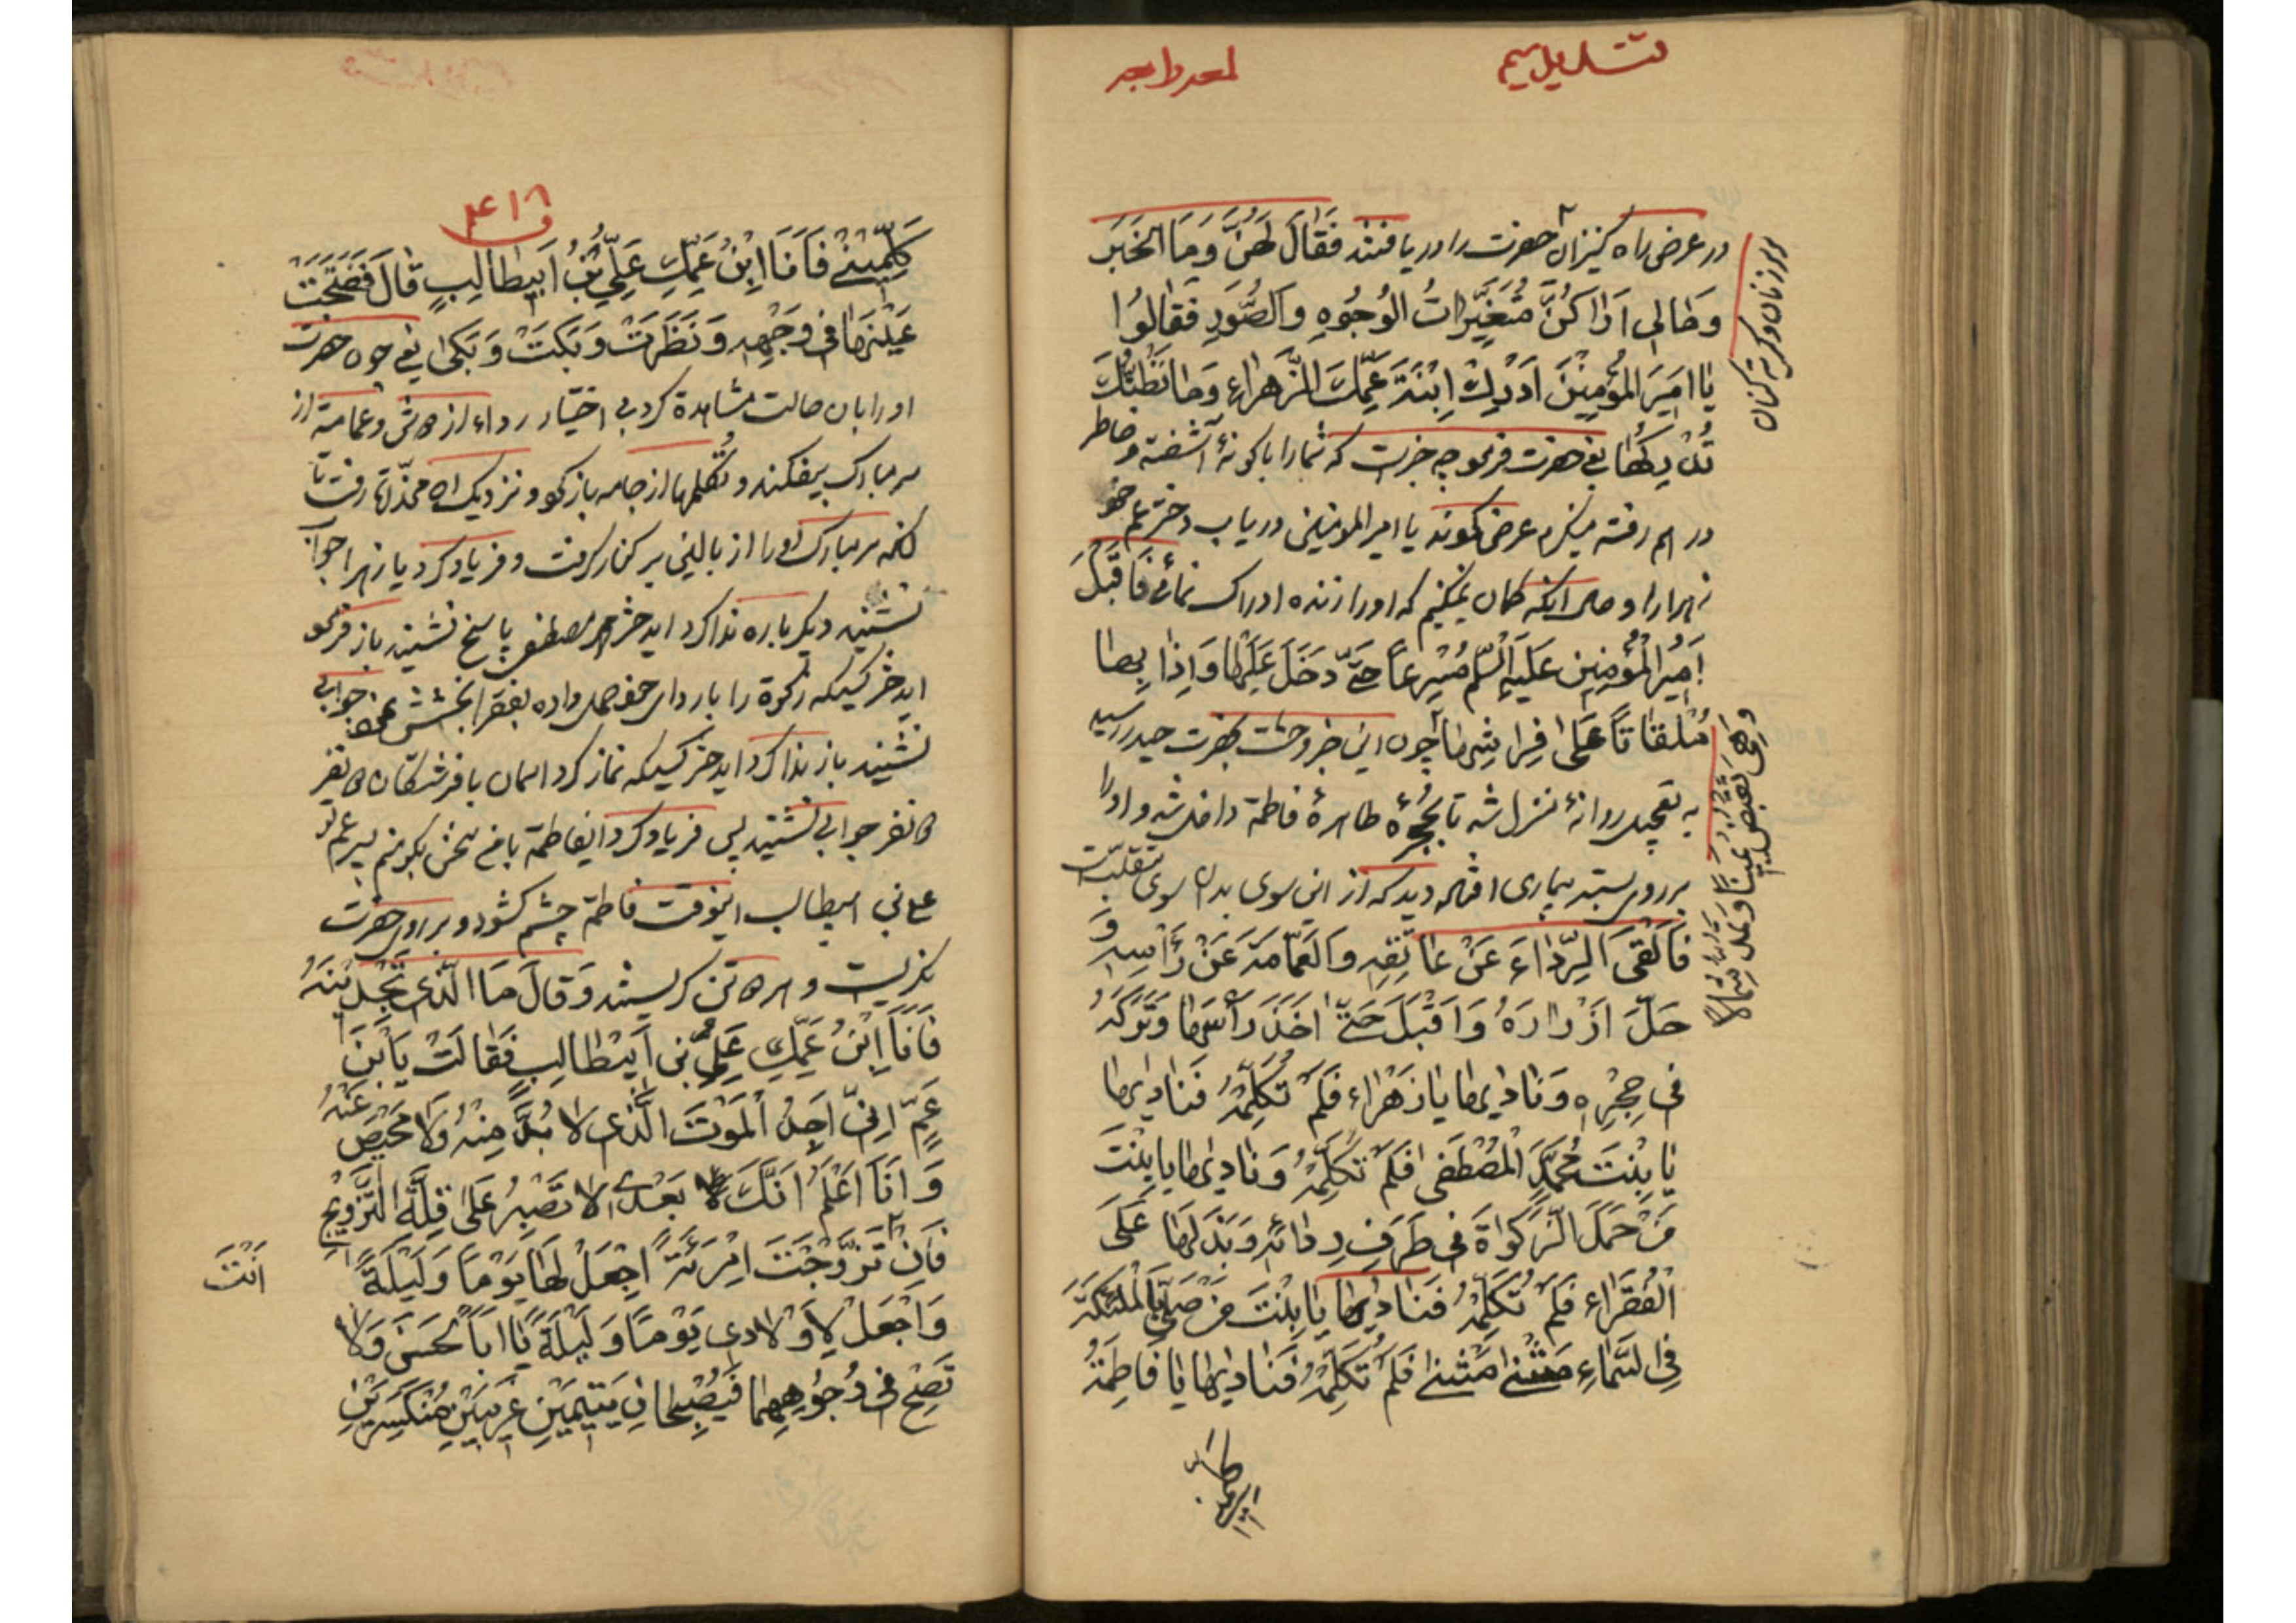 در عرض راه کنیزان حضرت را دریافتند فَقالَ لَهُنَّ وَمَا الخَبَر
وَمٰالی اَرٰاکُنَّ مُتَغَیِّراتُ الوُجُوهِ وَالصُّوَرِ فَقٰالُوا
یٰا اَمیَرَ المُؤمِنینَ اَدْرِكْ اِبْنَةَ عَمِّكَ الزَّهراءِ وَمٰا نَظُنُّكَ
تُدْرِکُهٰا یعنی حضرت فرمود چه خبرست که شمارا باکونهٔ آشفته و خاطر
در هم رفته مینکرم عرض نمودند یا امیر المؤمنین دریاب دختر عم خود
زهرا را و حال آنکه کمان نمیکنیم که او را زنده ادراک نمائے فَاَقبَلَ
اَمیُرالمُؤمِنین عَلَیهِ السّلم مُسْرِعاً حَتّیٰ دَخَلَ عَلَیْهٰا وَاِذٰا بِهٰا
مُلْقٰاتاً عَلیٰ فِراشِهٰا چون این خبر وحشت بحضرت حیدر رسید
به تعجیل روانهٔ منزل شد تا بحُجرهٔ طاهرهٔ فاطمة داخل شد و او را
بر روی بستر بیماری افتاده دید که از این سوی بدان سوی
فَاَلقَی الرِّدٰاءَ عَنْ عٰاتِقِهِ وَالعَمّامَةَ عَنْ رَأسِهِ وَ
حَلَّ اَزْرٰارَهُ وَاَقْبَلَ حَتّیٰ اَخَذَ رَأسَهٰا وَتَرَکَهُ
فی حِجْرِهِ وَنٰادٰیهٰا یٰا زَهْراء فَلَمْ تُکَلِّمْهُ فَنٰادٰیهٰا
یٰا بِنْتَ مُحَمَّدٍ المُصْطَفیٰ فَلَمْ تُکَلِّمْهُ وَنٰادٰیهٰا یٰا بِنْتَ
مَنْ حَمَلَ الزَّکوٰاةَ فی طَرَفِ رِدٰائِهِ وَبَذَلَهٰا عَلَی
الْفُقَرٰاءِ فَلَمْ تُکَلِّمْهُ فَنٰادٰیهٰا یٰا بِنْتَ مَنْ صَلّیٰ بِالمَلٰئِکَةِ
فِی السَّمٰاءِ مَثْنیٰ مَثْنیٰ فَلَمْ تُکَلِّمْهُ فَنٰادٰیهٰا یٰا فٰاطِمَةُ
وَهِیَ تَقبِضُ یَمیناً وَ شِمٰالاً
۴۱۸
کَلِّمینی فَاَنَا ابْنُ عَمِّكِ عَلِیُّ بْنُ اَبیطٰالِبٍ قٰالَ فَفَتَحَتْ
عَیْنَهٰا فی وَجْهِهِ وَنَظَرَتْ وَبَکَتْ وَبَکیٰ یعنی چون حضرت
او را بان حالت مشاهدة کرد بی اختیار رداء از دوش و عمامة از
سر مبارک بیفکند و تُکمه‌ها از جامه باز نمود و نزدیک آن مخدّرة رفت تا
آنکه سر مبارک او را از بالین بر کنار کرفت و فریاد کرد یا زهرا جوابی
نشنید دیکر باره ندا کرد ایدختر محمد مصطفی پاسخ نشنید باز فرمود
ایدختر کسیکه زکوة را با ردای خود حمل داده بفقرا بخشش نمود جوابی
نشنید باز ندا کرد ایدختر کسیکه نماز کرد در آسمان با فرشتکان دو نفر
دو نفر جوابی نشنید پس فریاد کرد ایفاطمة با من سخن بکو منم پسر عم تو
علی بن ابیطالب اینوقت فاطمة چشم کشود و بر روی حضرت
نکریست و هر دو تن کریستند وَقالَ مَا الَّذی تَجِدینَهُ
فَاَنَا ابْنُ عَمِّكِ عَلِیُّ بنی اَبیطالِبٍ فَقٰالَتْ یَابْنَ
عَمِّ اِنّی اَجِدُ الْمَوْتَ الَّذی لٰا بُدَّ مِنْهُ وَلٰا مَحیٖصَ عَنْهُ
وَاَنَا اَعْلَمُ اَنَّكَ بَعْدی لٰا تَصْبِرُ عَلیٰ قِلَّةِ التَّزْویجِ
فَاِنْ تَزَوَّجْتَ امْرَئَةً اجْعَلْ لَهٰا یَوْمًا وَلَیْلَةً
اَنْتَ
وَاجْعَلْ لِاَوْلٰادی یَوْمًا وَلَیْلَةً یٰا اَبَا الْحَسَنِ وَلٰا
تَصِحْ فی وُجُوهِهِمٰا فَیُصْبِحٰانِ یَتیمَیْنِ غَریبَیْنِ مُنْکَسِرَیْنِ